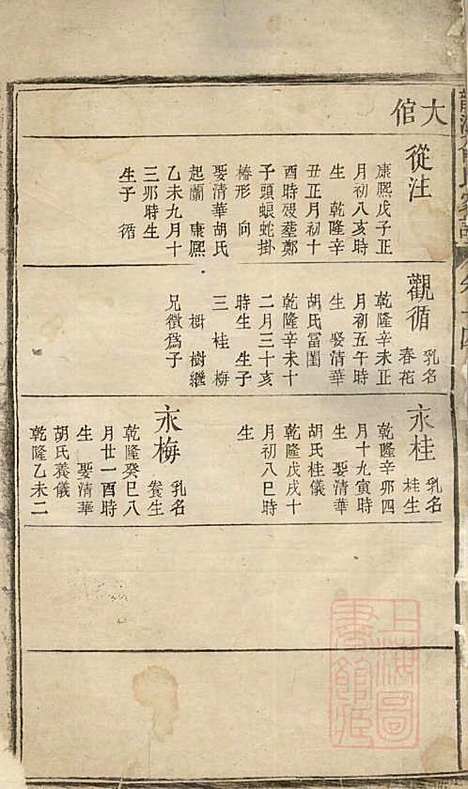 大
倌
從注
康熙戊子正
月初八亥時
生 乾隆辛
丑正月初十
酉時歿塟鄭
子頭蜋蛇掛
椿形 向
娶清華胡氏
起蘭 康熙
乙未九月十
三夘時生
生子 循
觀循
乳名
春花
乾隆辛未正
月初五午時
生 娶清華
胡氏冨闺
乾隆辛未十
二月三十亥
時生 生子
三 桂 梅
樹 樹繼
兄徴爲子
永桂
乳名
桂生
乾隆辛夘四
月十九寅時
生 娶清華
胡氏桂儀
乾隆戊戌十
月初八巳時
生
永梅
乳名
養生
乾隆癸巳八
月廿一酉時
生 娶清華
胡氏養儀
乾隆乙未二
上海圖
書館藏